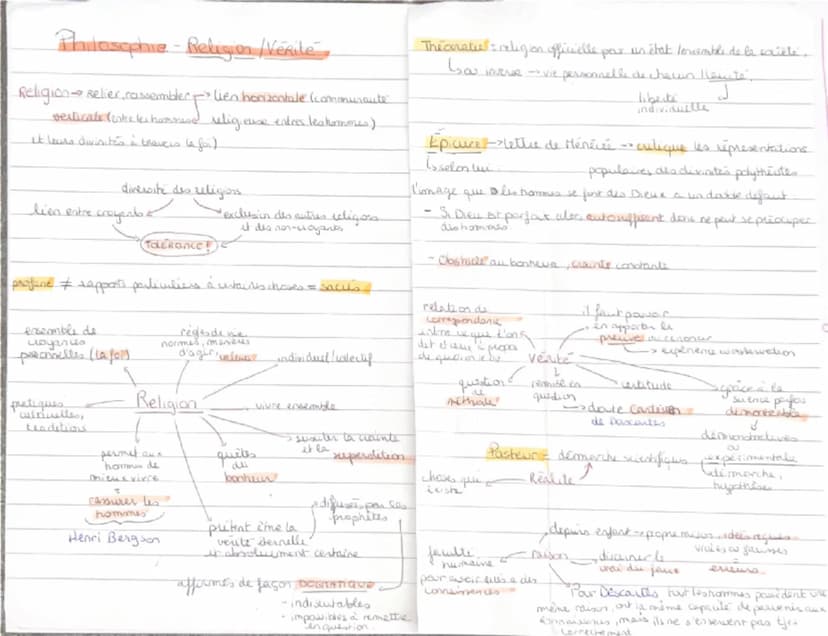 Philosophie - Religion / Vérité
Religion → relier, rassembler → lien horizontale (communauté
verticale (entre les hommes religieuse entres les hommes)
et leurs divinités à travers la foi)
diversité des religions
lien entre croyants exclusion des autres religions
et des non-croyants
TOLÉRANCE !
profane ≠ rapports particuliers à certaines choses = sacrés
ensemble de
croyances
personnelles (la foi)
règles de vie
normes, manières
d'agir, valeurs
individuel/collectif
pratiques
cultuelles,
traditions
Religion
vivre ensemble
susciter la crainte
et la superstition
permet aux
hommes de
mieux vivre
=
rassurer les
hommes
Henri Bergson
quêtes
du
bonheur
prétend être la
vérité éternelle
et absolument certaine
diffusées par les
prophètes
affirmés de façon DOGMATIQUE
- indiscutables
- impossibles à remettre
en question
Théocratie = religion officielle par un état / ensemble de la société.
ou inverse → vie personnelle de chacun
liberté
individuelle
Épicure → lettre de Ménécée → critique les représentations
selon lui populaires des divinités polythéistes
l'image que les hommes se font des Dieux a un double défaut
- Si Dieu est parfait alors autosuffisant donc ne peut se préoccuper
des hommes
- Obstacle au bonheur, crainte constante
relation de
correspondance
entre ce que l'on
dit et ceci à propos
de quoi on le dit
il faut pouvoir
en apporter la
preuve
→ expérience
Vérité
question
de
méthode
remise en
question
→ doute Cartésien
de Descartes
certitude
grâce à la
science parfois
démontrable
démonstratives
ou
expérimentale
démarche,
hypothèses
Pasteur = démarche scientifiques
choses qui
existe
Réalité
faculté
humaine
pour avoir accès a des
connaissances
raison
depuis enfant → propre raison, idées reçues
vraies ou fausses
discerner le
vrai du faux
erreurs
Pour Descartes tout les hommes possèdent une
même raison, ont la même capacité de parvenir aux
connaissances, mais ils ne s'en servent pas tjrs
correctement